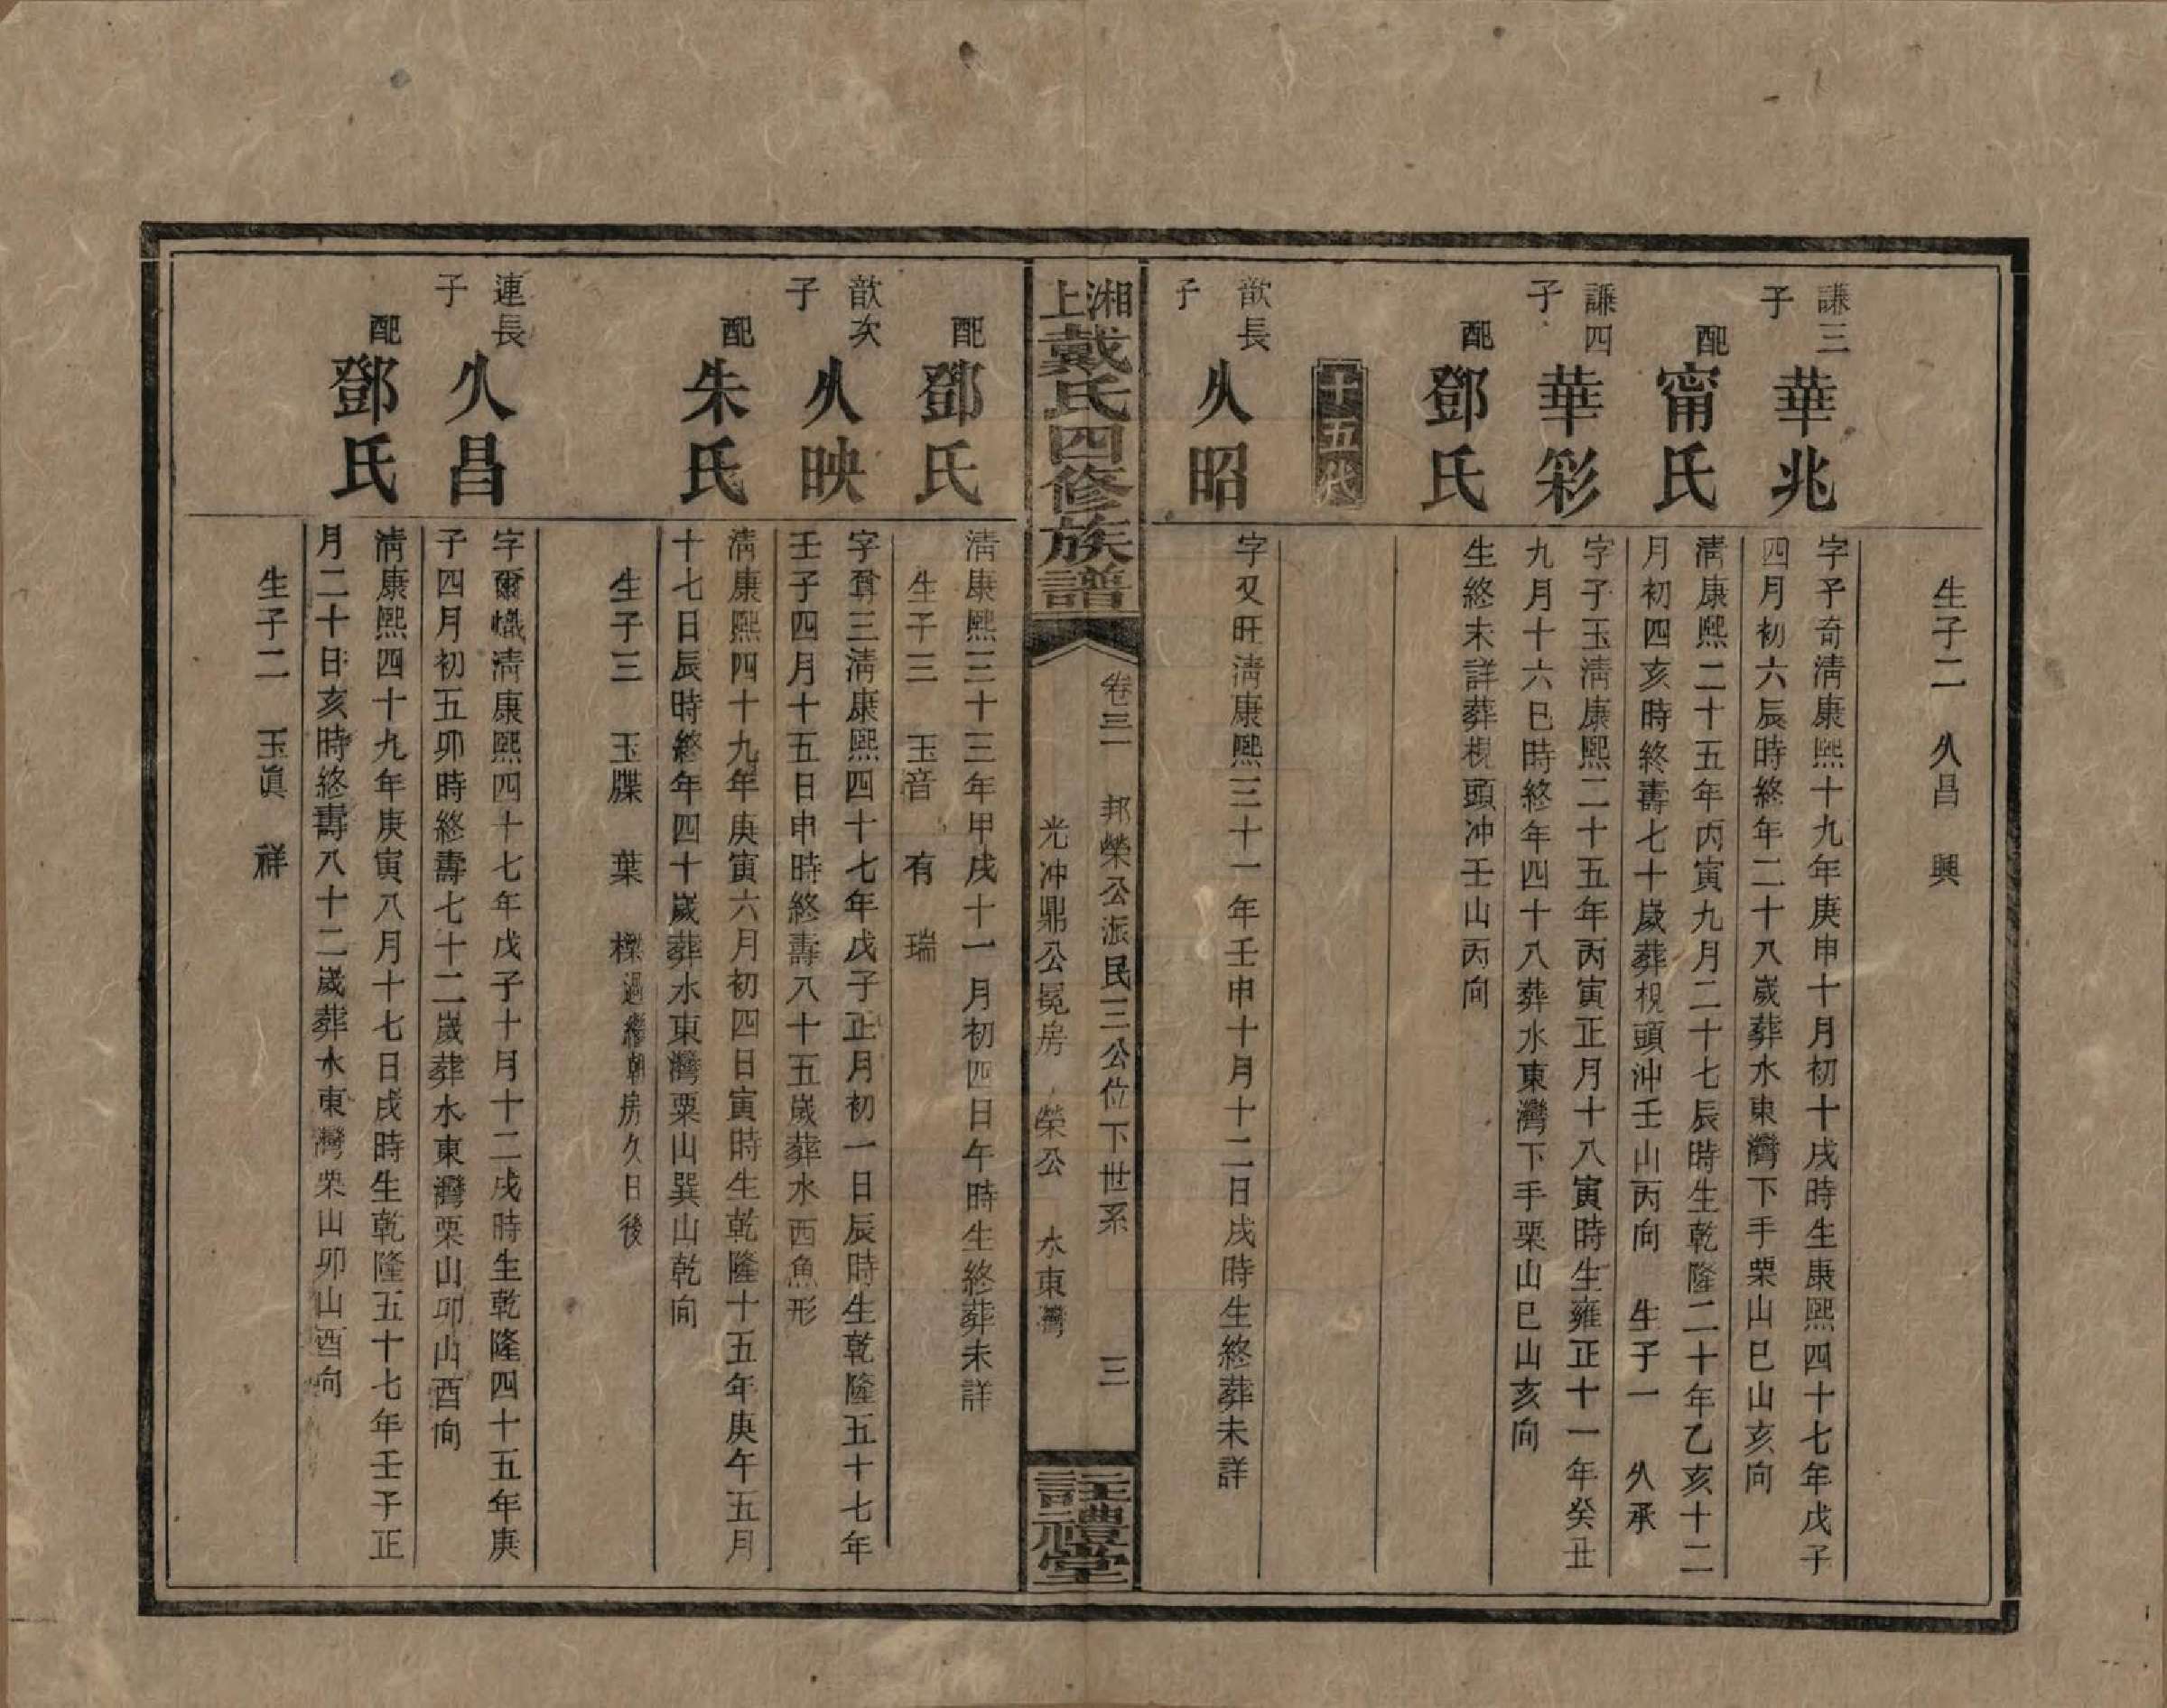 生子二 久昌 興
謙三子
華兆
字予奇淸康熙十九年庚申十月初十戌時生康熙四十七年戊子
四月初六辰時終年二十八歲葬水東灣下手栗山巳山亥向
配
甯氏
淸康熙二十五年丙寅九月二十七辰時生乾隆二十年乙亥十二
月初四亥時終壽七十歲葬梘頭沖壬山丙向 生子一 久承
謙四子
華彩
字子玉淸康熙二十五年丙寅正月十八寅時生雍正十一年癸丑
九月十六巳時終年四十八葬水東灣下手栗山巳山亥向
配
鄧氏
生終未詳葬梘頭冲壬山丙向
十五代
歆長子
久昭
字又旺淸康熙三十一年壬申十月十二日戌時生終葬未詳
湘上戴氏四修族譜
卷三 邦榮公派民三公位下世系 三
光冲鼎公冕房 榮公 水東灣
註禮堂
配
鄧氏
淸康熙三十三年甲戌十一月初四日午時生終葬未詳
生子三 玉音 有 瑞
歆次子
久映
字聲三淸康熙四十七年戊子正月初一日辰時生乾隆五十七年
壬子四月十五日申時終壽八十五歲葬水西魚形
配
朱氏
淸康熙四十九年庚寅六月初四日寅時生乾隆十五年庚午五月
十七日辰時終年四十歲葬水東灣粟山巽山乾向
生子三 玉牒 葉 樑過繼朝房久日後
連長子
久昌
字爾幟淸康熙四十七年戊子十月十二戌時生乾隆四十五年庚
子四月初五卯時終壽七十二歲葬水東灣栗山卯山酉向
配
鄧氏
淸康熙四十九年庚寅八月十七日戌時生乾隆五十七年壬子正
月二十日亥時終壽八十二歲葬水東灣栗山卯山酉向
生子二 玉眞 祥